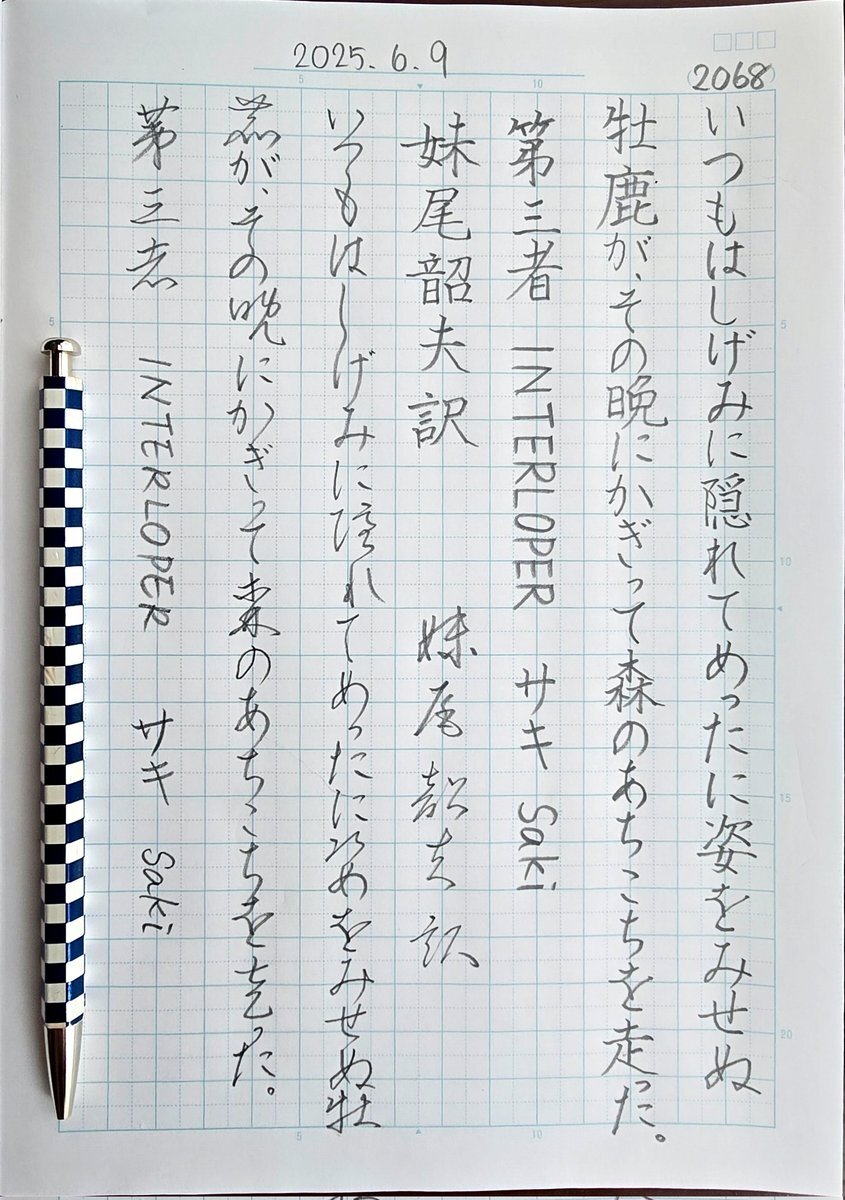 2025.6.9
(2068)
いつもはしげみに隠れてめったに姿をみせぬ
牡鹿が、その晩にかぎって森のあちこちを走った。
第三者 INTERLOPER サキ Saki
妹尾韶夫訳 妹尾韶夫訳
いつもはしげみに隠れてめったに姿をみせぬ牡
鹿が、その晩にかぎって森のあちこちを走った。
第三者 INTERLOPER サキ Saki
5
10
5
10
15
20
5
5
10